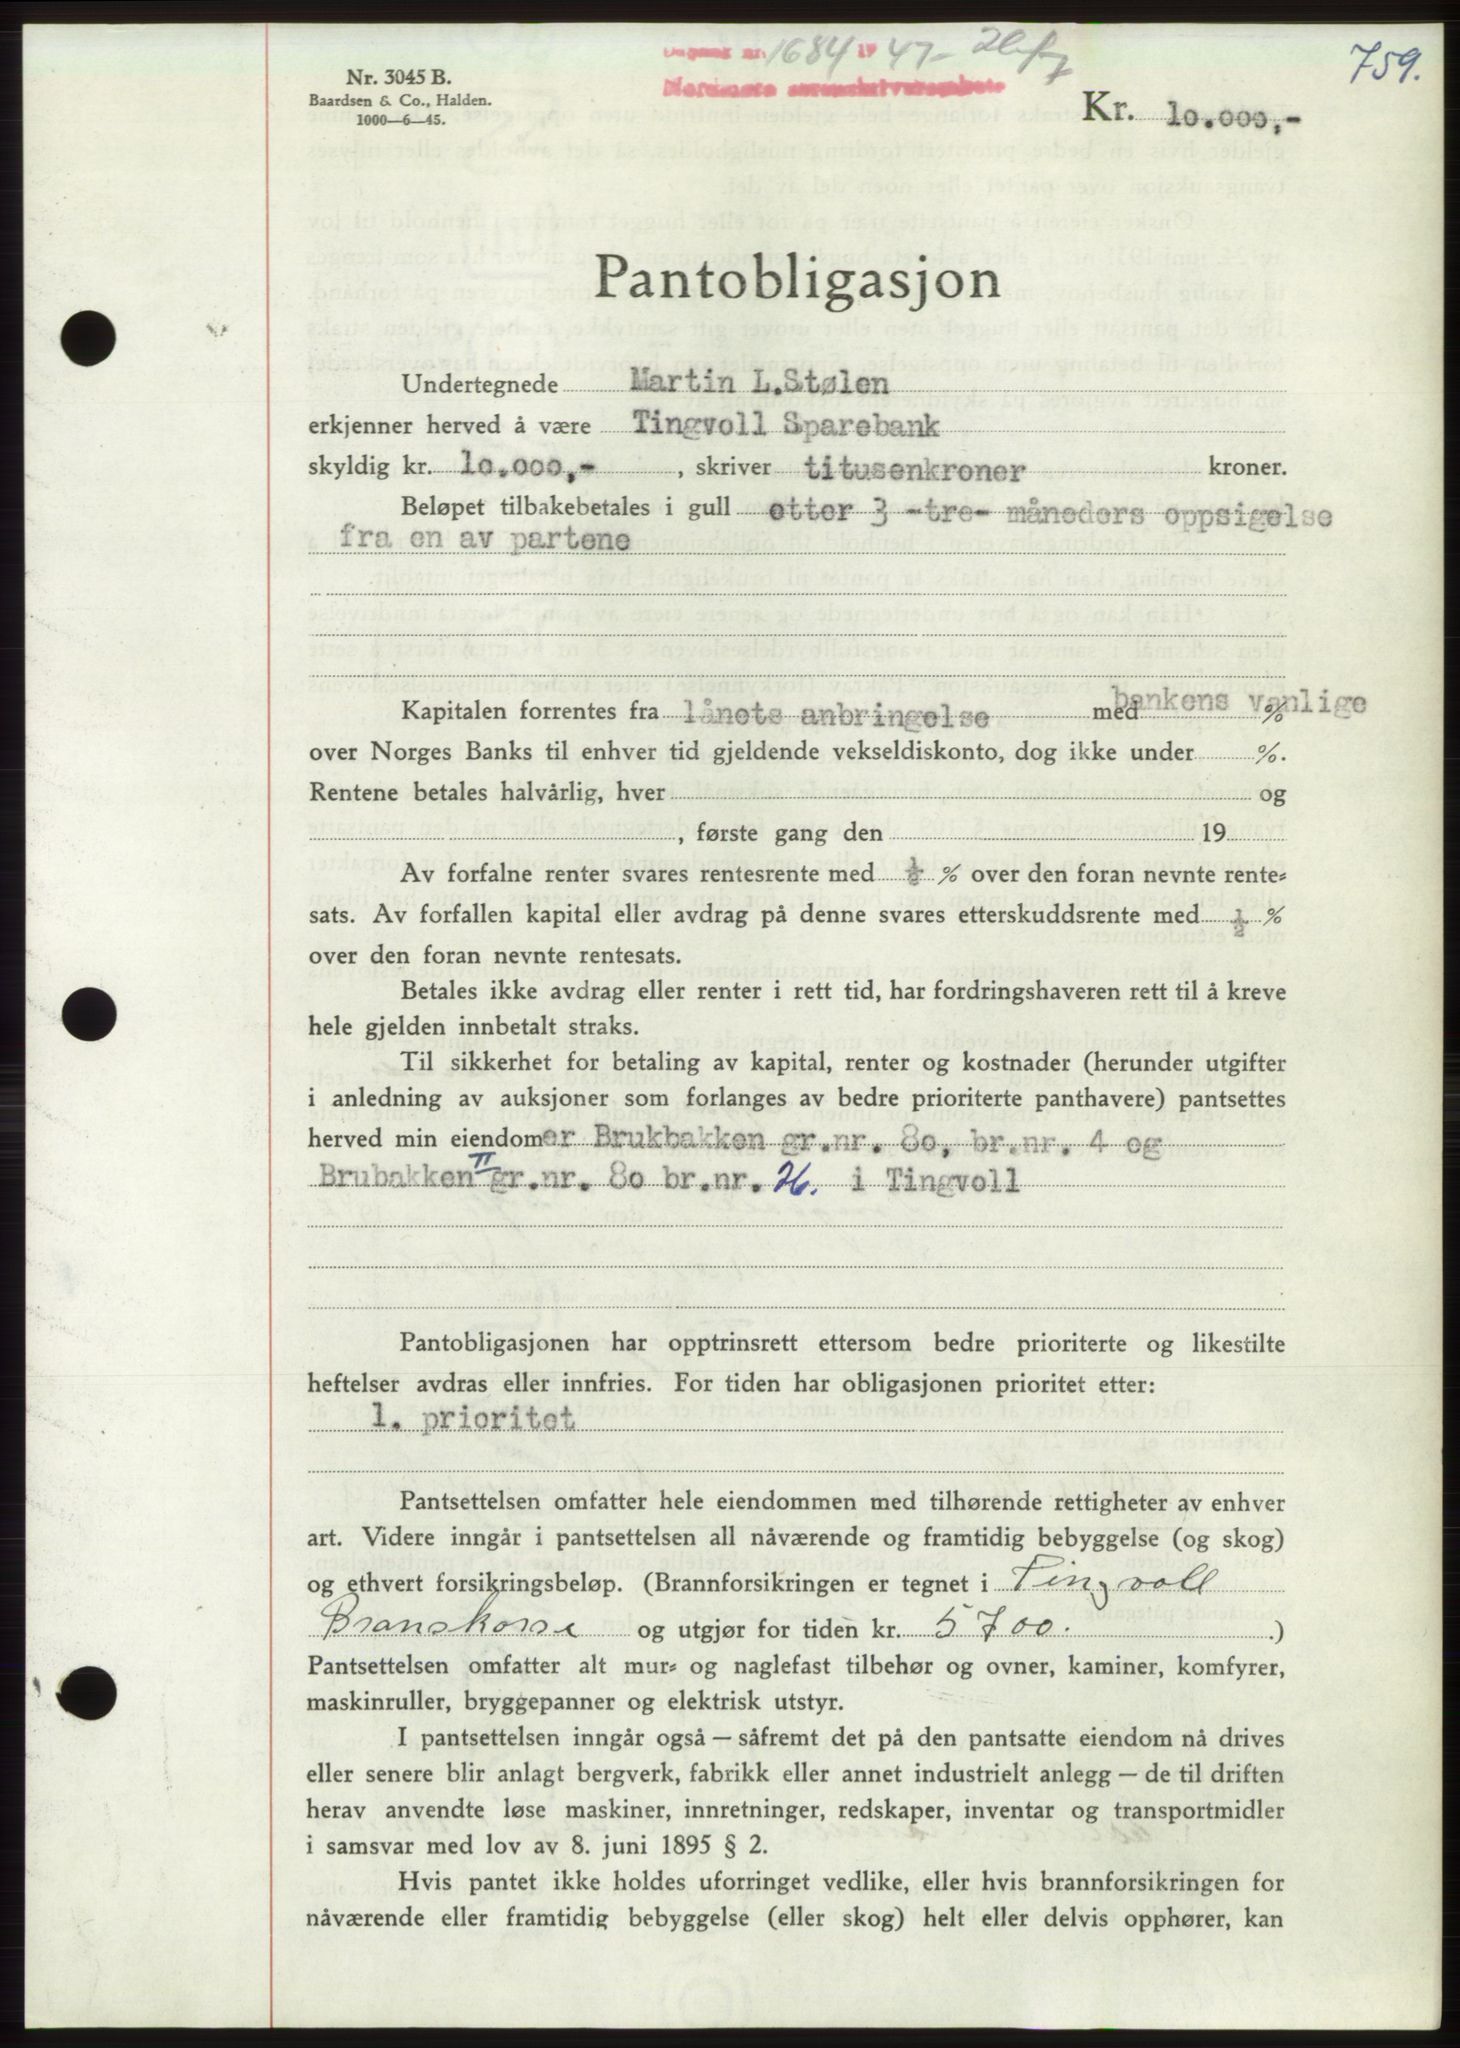 759.
Dagbok nr. 1684 1947
Nordmøre sorenskriverembete
Nr. 3045 B.
Baardsen & Co., Halden.
1000—6—45.
Kr. 10.000,-
Pantobligasjon
Undertegnede Martin L.Stølen
erkjenner herved å være Tingvoll Sparebank
skyldig kr. 10.000,- , skriver titusenkroner kroner.
Beløpet tilbakebetales i gull etter 3 -tre- måneders oppsigelse
fra en av partene
Kapitalen forrentes fra lånets anbringelse med bankens vanlige %
over Norges Banks til enhver tid gjeldende vekseldiskonto, dog ikke under %.
Rentene betales halvårlig, hver og
, første gang den 19
Av forfalne renter svares rentesrente med ½ % over den foran nevnte rente-
sats. Av forfallen kapital eller avdrag på denne svares etterskuddsrente med ½ %
over den foran nevnte rentesats.
Betales ikke avdrag eller renter i rett tid, har fordringshaveren rett til å kreve
hele gjelden innbetalt straks.
Til sikkerhet for betaling av kapital, renter og kostnader (herunder utgifter
i anledning av auksjoner som forlanges av bedre prioriterte panthavere) pantsettes
herved min eiendomer Brukbakken gr.nr. 80, br.nr. 4 og
Brubakken II gr.nr. 80 br.nr. 26. i Tingvoll
Pantobligasjonen har opptrinsrett ettersom bedre prioriterte og likestilte
heftelser avdras eller innfries. For tiden har obligasjonen prioritet etter:
1. prioritet
Pantsettelsen omfatter hele eiendommen med tilhørende rettigheter av enhver
art. Videre inngår i pantsettelsen all nåværende og framtidig bebyggelse (og skog)
og ethvert forsikringsbeløp. (Brannforsikringen er tegnet i Tingvoll
Branskasse og utgjør for tiden kr. 5700. .)
Pantsettelsen omfatter alt mur- og naglefast tilbehør og ovner, kaminer, komfyrer,
maskinruller, bryggepanner og elektrisk utstyr.
I pantsettelsen inngår også — såfremt det på den pantsatte eiendom nå drives
eller senere blir anlagt bergverk, fabrikk eller annet industrielt anlegg — de til driften
herav anvendte løse maskiner, innretninger, redskaper, inventar og transportmidler
i samsvar med lov av 8. juni 1895 § 2.
Hvis pantet ikke holdes uforringet vedlike, eller hvis brannforsikringen for
nåværende eller framtidig bebyggelse (eller skog) helt eller delvis opphører, kan